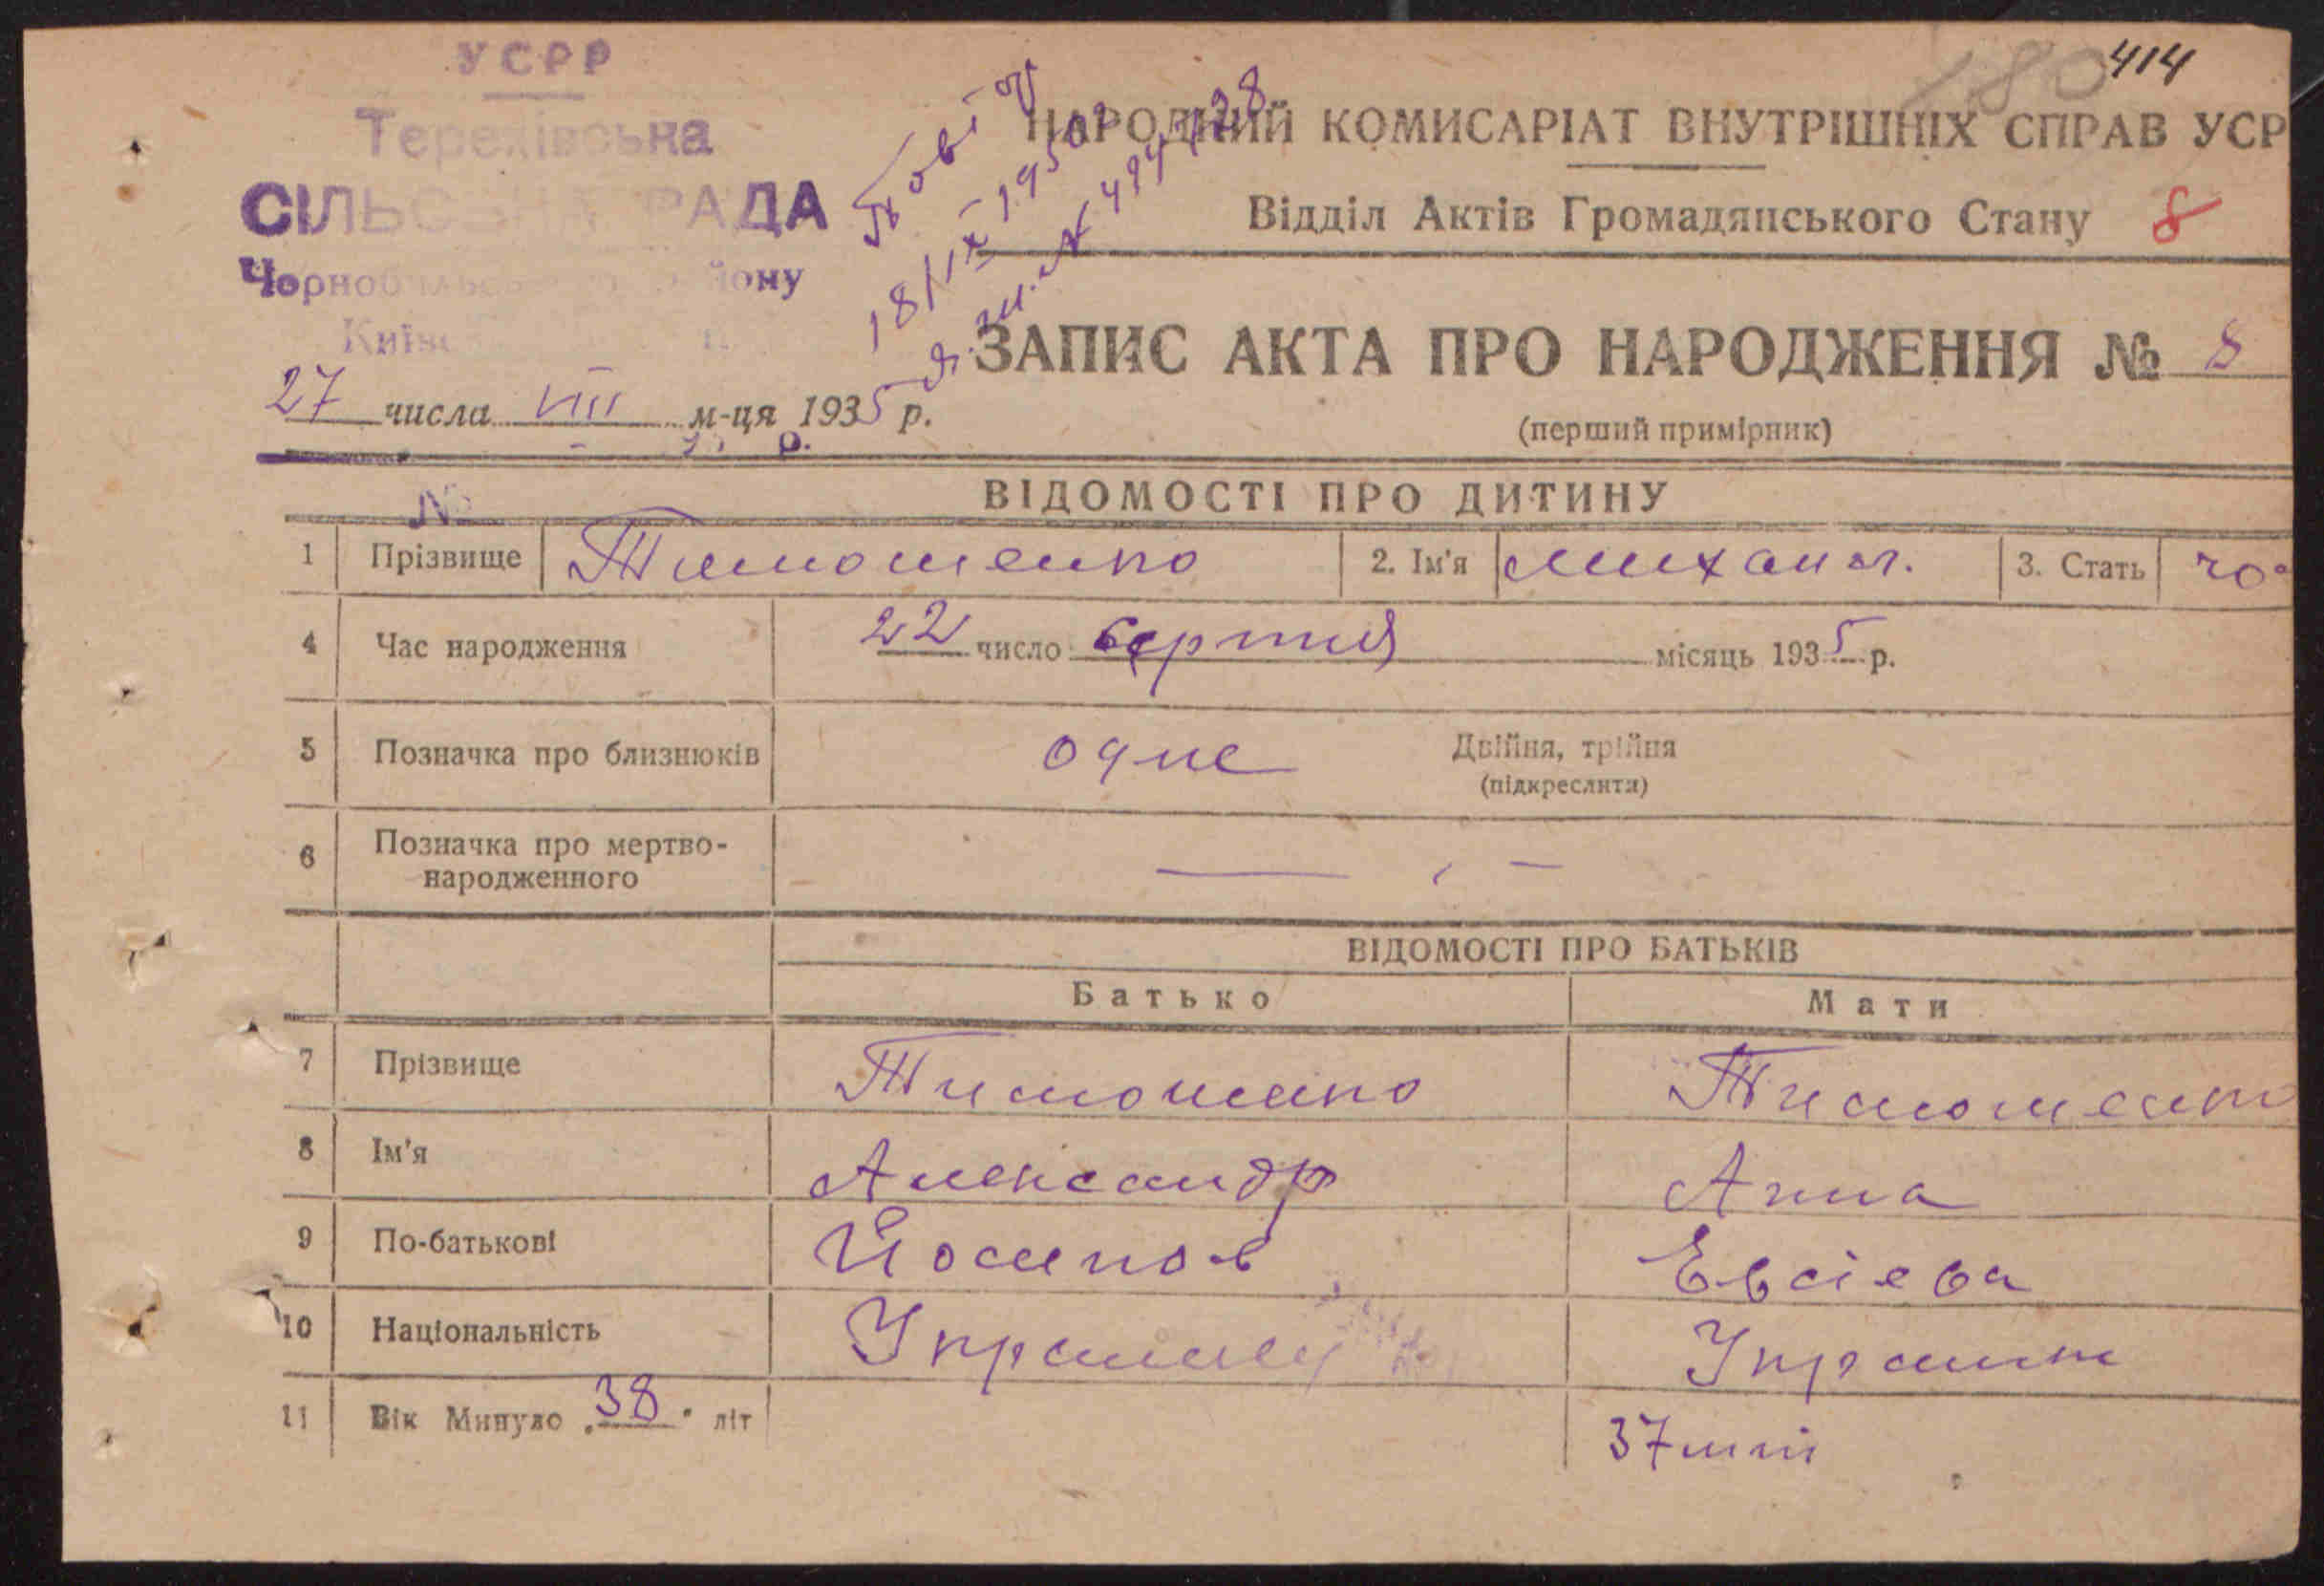 УСРР
Терехівська
СІЛЬСЬКА РАДА
Чорнобильського району
414
НАРОДНИЙ КОМИСАРІАТ ВНУТРІШНІХ СПРАВ УСР
Відділ Актів Громадянського Стану 8
18/IX 1950
ЗАПИС АКТА ПРО НАРОДЖЕННЯ № 8
(перший примірник)
27 числа VIII м-ця 1935 р.
№
ВІДОМОСТІ ПРО ДИТИНУ
1 Прізвище Тимошенко 2. Ім'я Михаил. 3. Стать чо
4 Час народження 22 число серпня місяць 1935 р.
5 Позначка про близнюків одне Двійня, трійня
(підкреслити)
6 Позначка про мертво-
народженного —
ВІДОМОСТІ ПРО БАТЬКІВ
Батько Мати
7 Прізвище Тимошенко Тимошенко
8 Ім'я Александр Анна
9 По-батькові Йосипов Евсіева
10 Національність Українец Україн
11 Вік Минуло „38" літ 37 літ